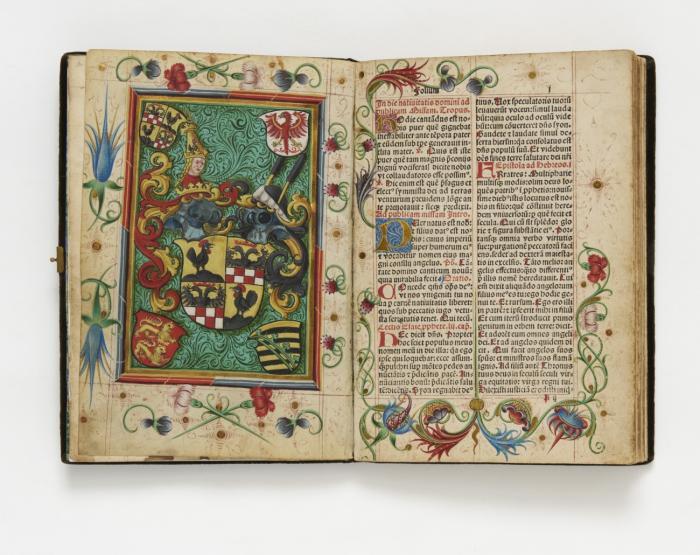 Folium j
In die natiuitatis domini ad
publicam Missam. Tropus.
Hodie cantãdus est no
bis puer quẽ gignebat
ineffabiliter ante tẽpora pater
et eũdem sub tpe generauit incly
ta mater. Quis est iste
puer quẽ tam magnis p̃coniis
dignũ vociferat̃ dicite nobis
vt collaudatores esse possim⁹.
Hic enim est quẽ
venturum
p̃monstrauit: sicq̃ predixit.
Ad publicam missam Intro.
Puer natus est nob
filius dat⁹ est no
bis: cuius imperiũ
super humerum ei⁹:
et vocabitur nomen eius ma
gni consilij angelus. Ps. Cã
tate domino canticum nouũ:
quia mirabilia fecit. Oratio.
Concede q̃s om̃ps de⁹:
vt nos vnigeniti tui no
ua p carnẽ natiuitas liberet:
quos sub peccati iugo vetu
sta seruitus tenet. Qui tecũ.
Lectio Esaie p̃phete. lij. cap.
Hec dicit dñs. Propter
hoc sciet populus meus
nomen meũ in die illa: q̃a ego
ipse qui loquebar: ecce assum.
Q̃ pulchri sup mõtes pedes an
nũciãtis et p̃dicãtis pacẽ. An
nunciantis bonũ: p̃dicãtis salu
tẽ: dicẽtis Syon regnabit de⁹
tuus. Vox speculatorũ tuorũ
leuauerũt vocem: simul lauda
bũt: quia oculo ad oculũ vide
bũt: cum cõuerterit dñs syon.
Gaudete et laudate simul de
serta hierusalẽ: q̃a consolatus est
dñs populũ suũ. Et videbunt
oẽs fines terre salutare dei nři
Epistola ad Hebreos. j
Fratres: Multipharie
multisq̃ modis olim deus lo
quẽs patrib⁹ ĩ p̃phetis: nouis
sime dieb⁹ istis locutus est no
bis in filio: quem cõstituit here
dem vniuersorũ: p quẽ fecit et
secula. Qui cũ sit splẽdor glo
rie et figura substãtie ei⁹. Por
tansq̃ omnia verbo virtutis
sue: purgationẽ peccatorũ faci
ens: sedet ad dexterã maiesta
tis in excelsis. Tãto melior an
gelis effectus: q̃nto differenti⁹
p illis nomẽ hereditauit. Cui
em̃ dixit aliquãdo angelorum:
filius me⁹ es tu: ego hodie ge
nui te. Et rursum. Ego ero illi
in patrẽ: et ip̃e erit mihi in filiũ
Et cum iterũ introducit primo
genitum in orbem terre: dicit.
Et adorẽt eum omnes angeli
dei. Et ad angelos quidem di
cit. Qui facit angelos suos
sp̃us: et ministros suos flamã
ignis. Ad filiũ aũt Thronus
tuus deus in seculũ seculi: vir
ga equitatis virga regni tui.